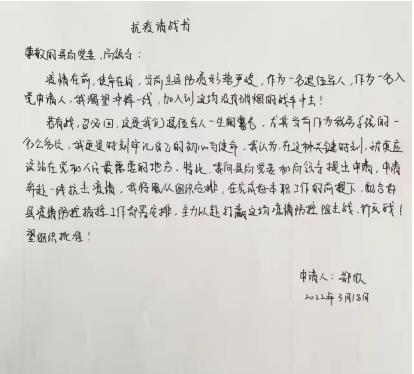 抗疫请战书
尊敬的县局党委、局领导：
疫情在前，使命在肩，当前全县防疫形势严峻，作为一名退伍军人，作为一名入
党申请人，我渴望冲锋一线，加入到这场没有硝烟的战斗中去！
若有战，召必回，这是我们退伍军人一生的誓言，尤其当前作为税务系统的一
名公务员，我更是时刻牢记自己的初心与使命。我认为，在这种关键时刻，就更应
该站在党和人民最需要的地方。特此，我向县局党委和局领导提出申请，申请
奔赴一线抗击疫情。我将服从组织安排，在完成好本职工作的前提下，配合好
县疫情防控指挥工作部署安排，全力以赴打赢这场疫情防控阻击战、歼灭战！
望组织批准！
申请人：郑欣
2022年3月18日